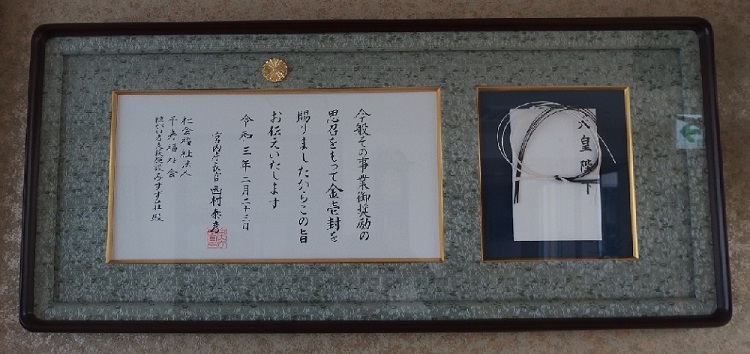 天皇陛下
今般その事業御奨励の
思召をもって金壱封を
賜りましたからこの旨
お伝えいたします
令和三年二月二十三日
宮内庁長官 西村泰彦
社会福祉法人
千寿福祉会
障がい者支援施設みすず荘殿